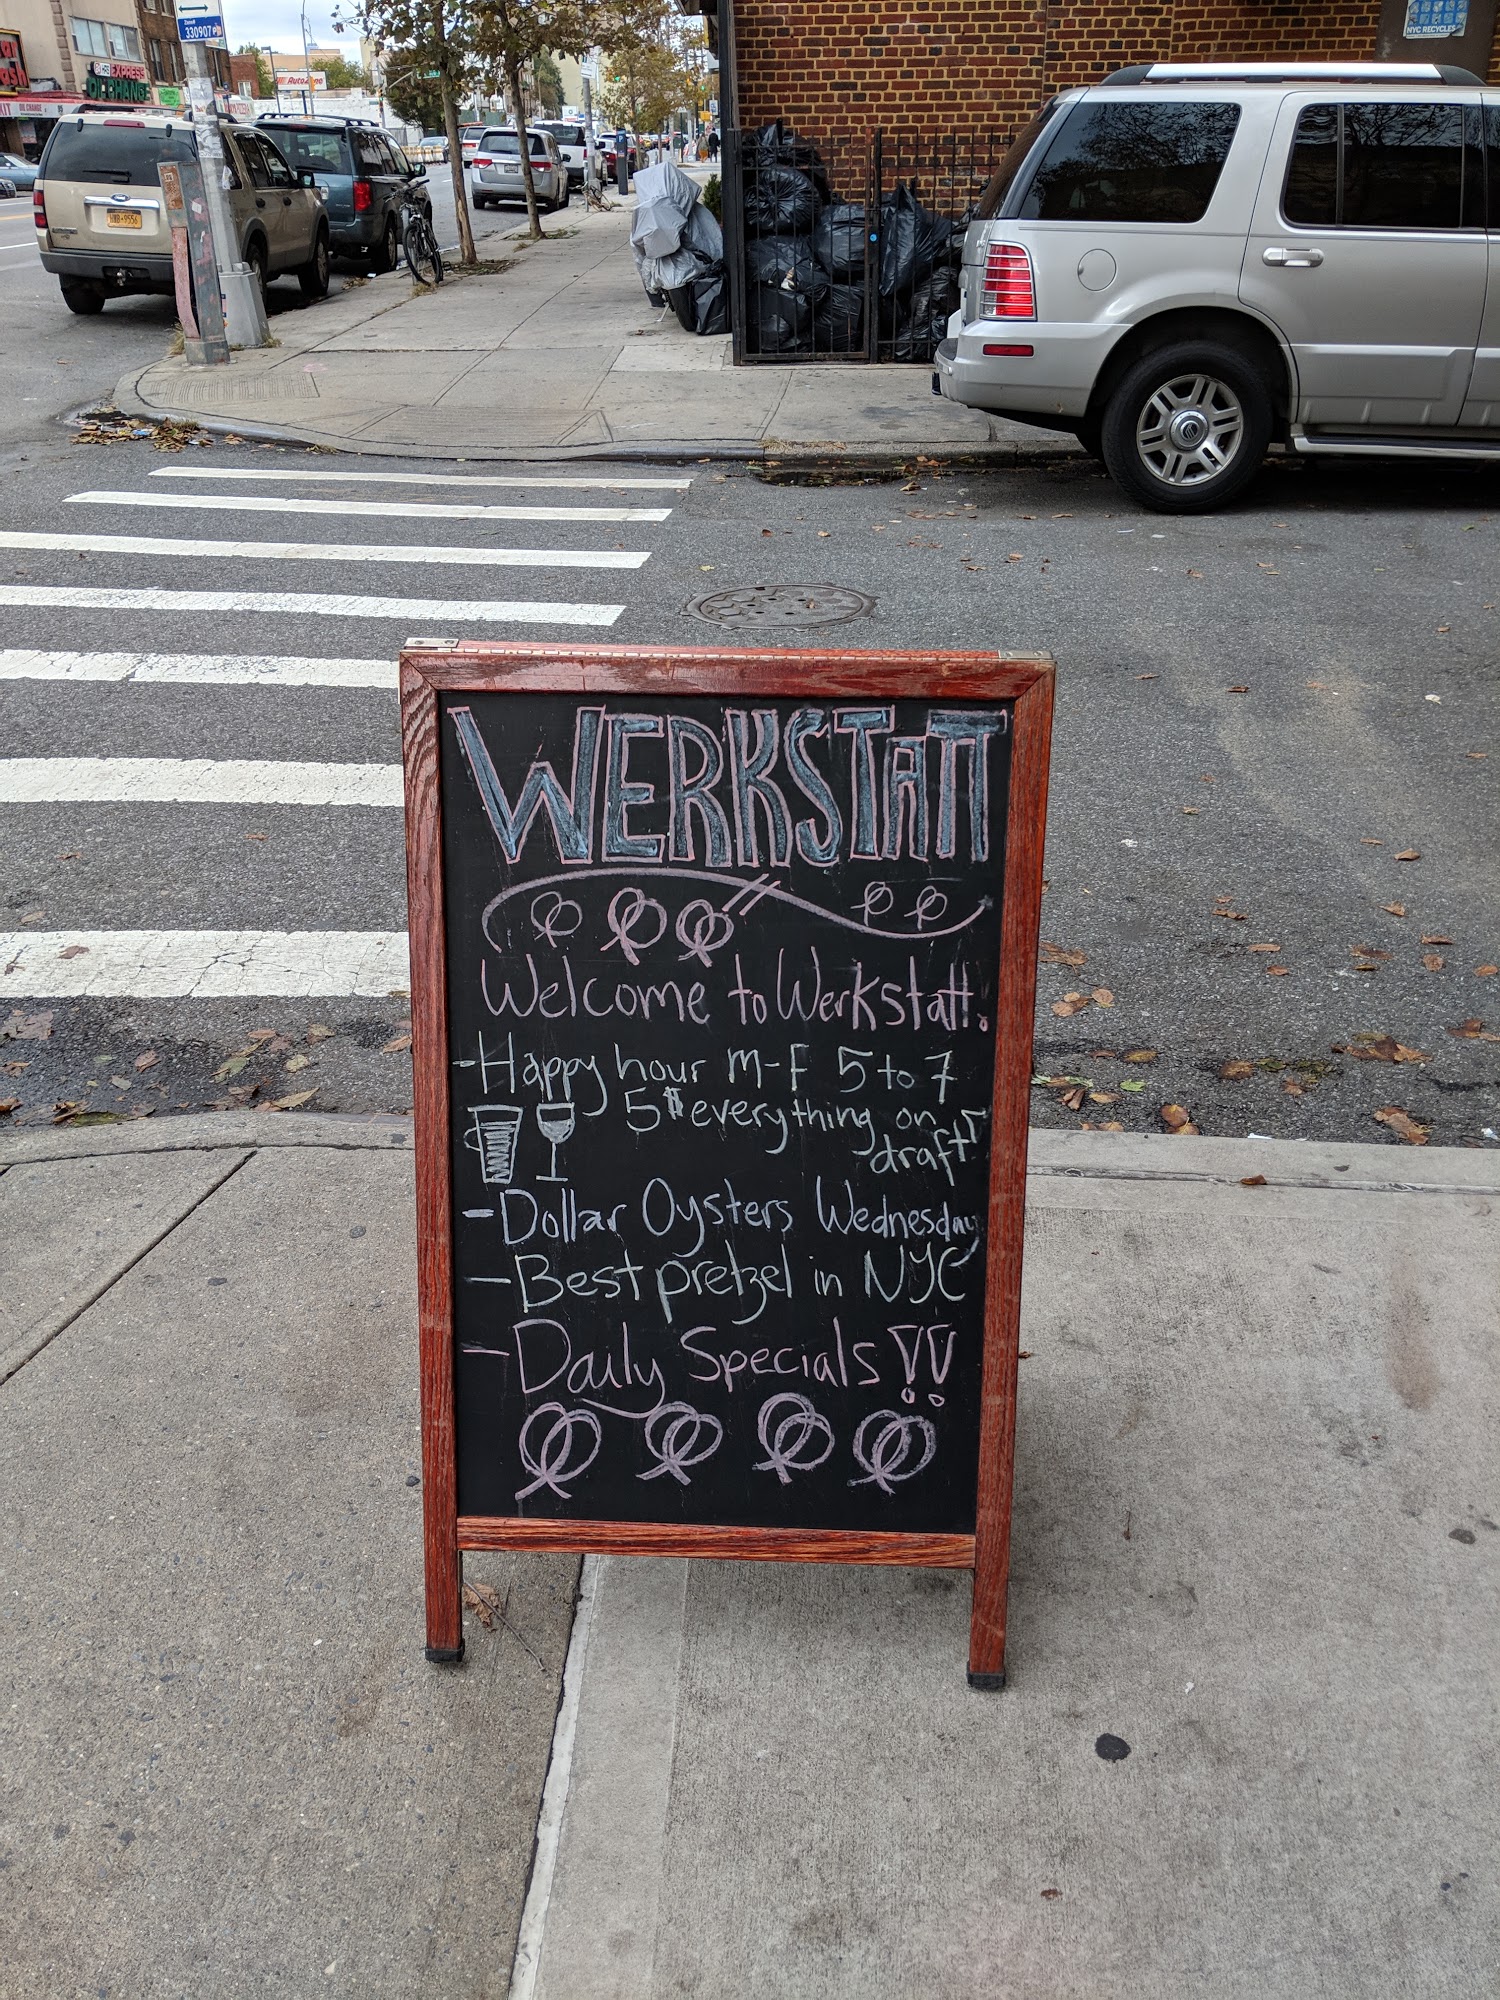 Zone#
330907
EXPRESS
OIL CHANGE
AutoZone
NYC RECYCLES
WERKSTATT
Welcome to Werkstatt!
-Happy hour M-F 5 to 7
5$ everything on
draft!
-Dollar Oysters Wednesday
-Best pretzel in NYC
-Daily Specials!!